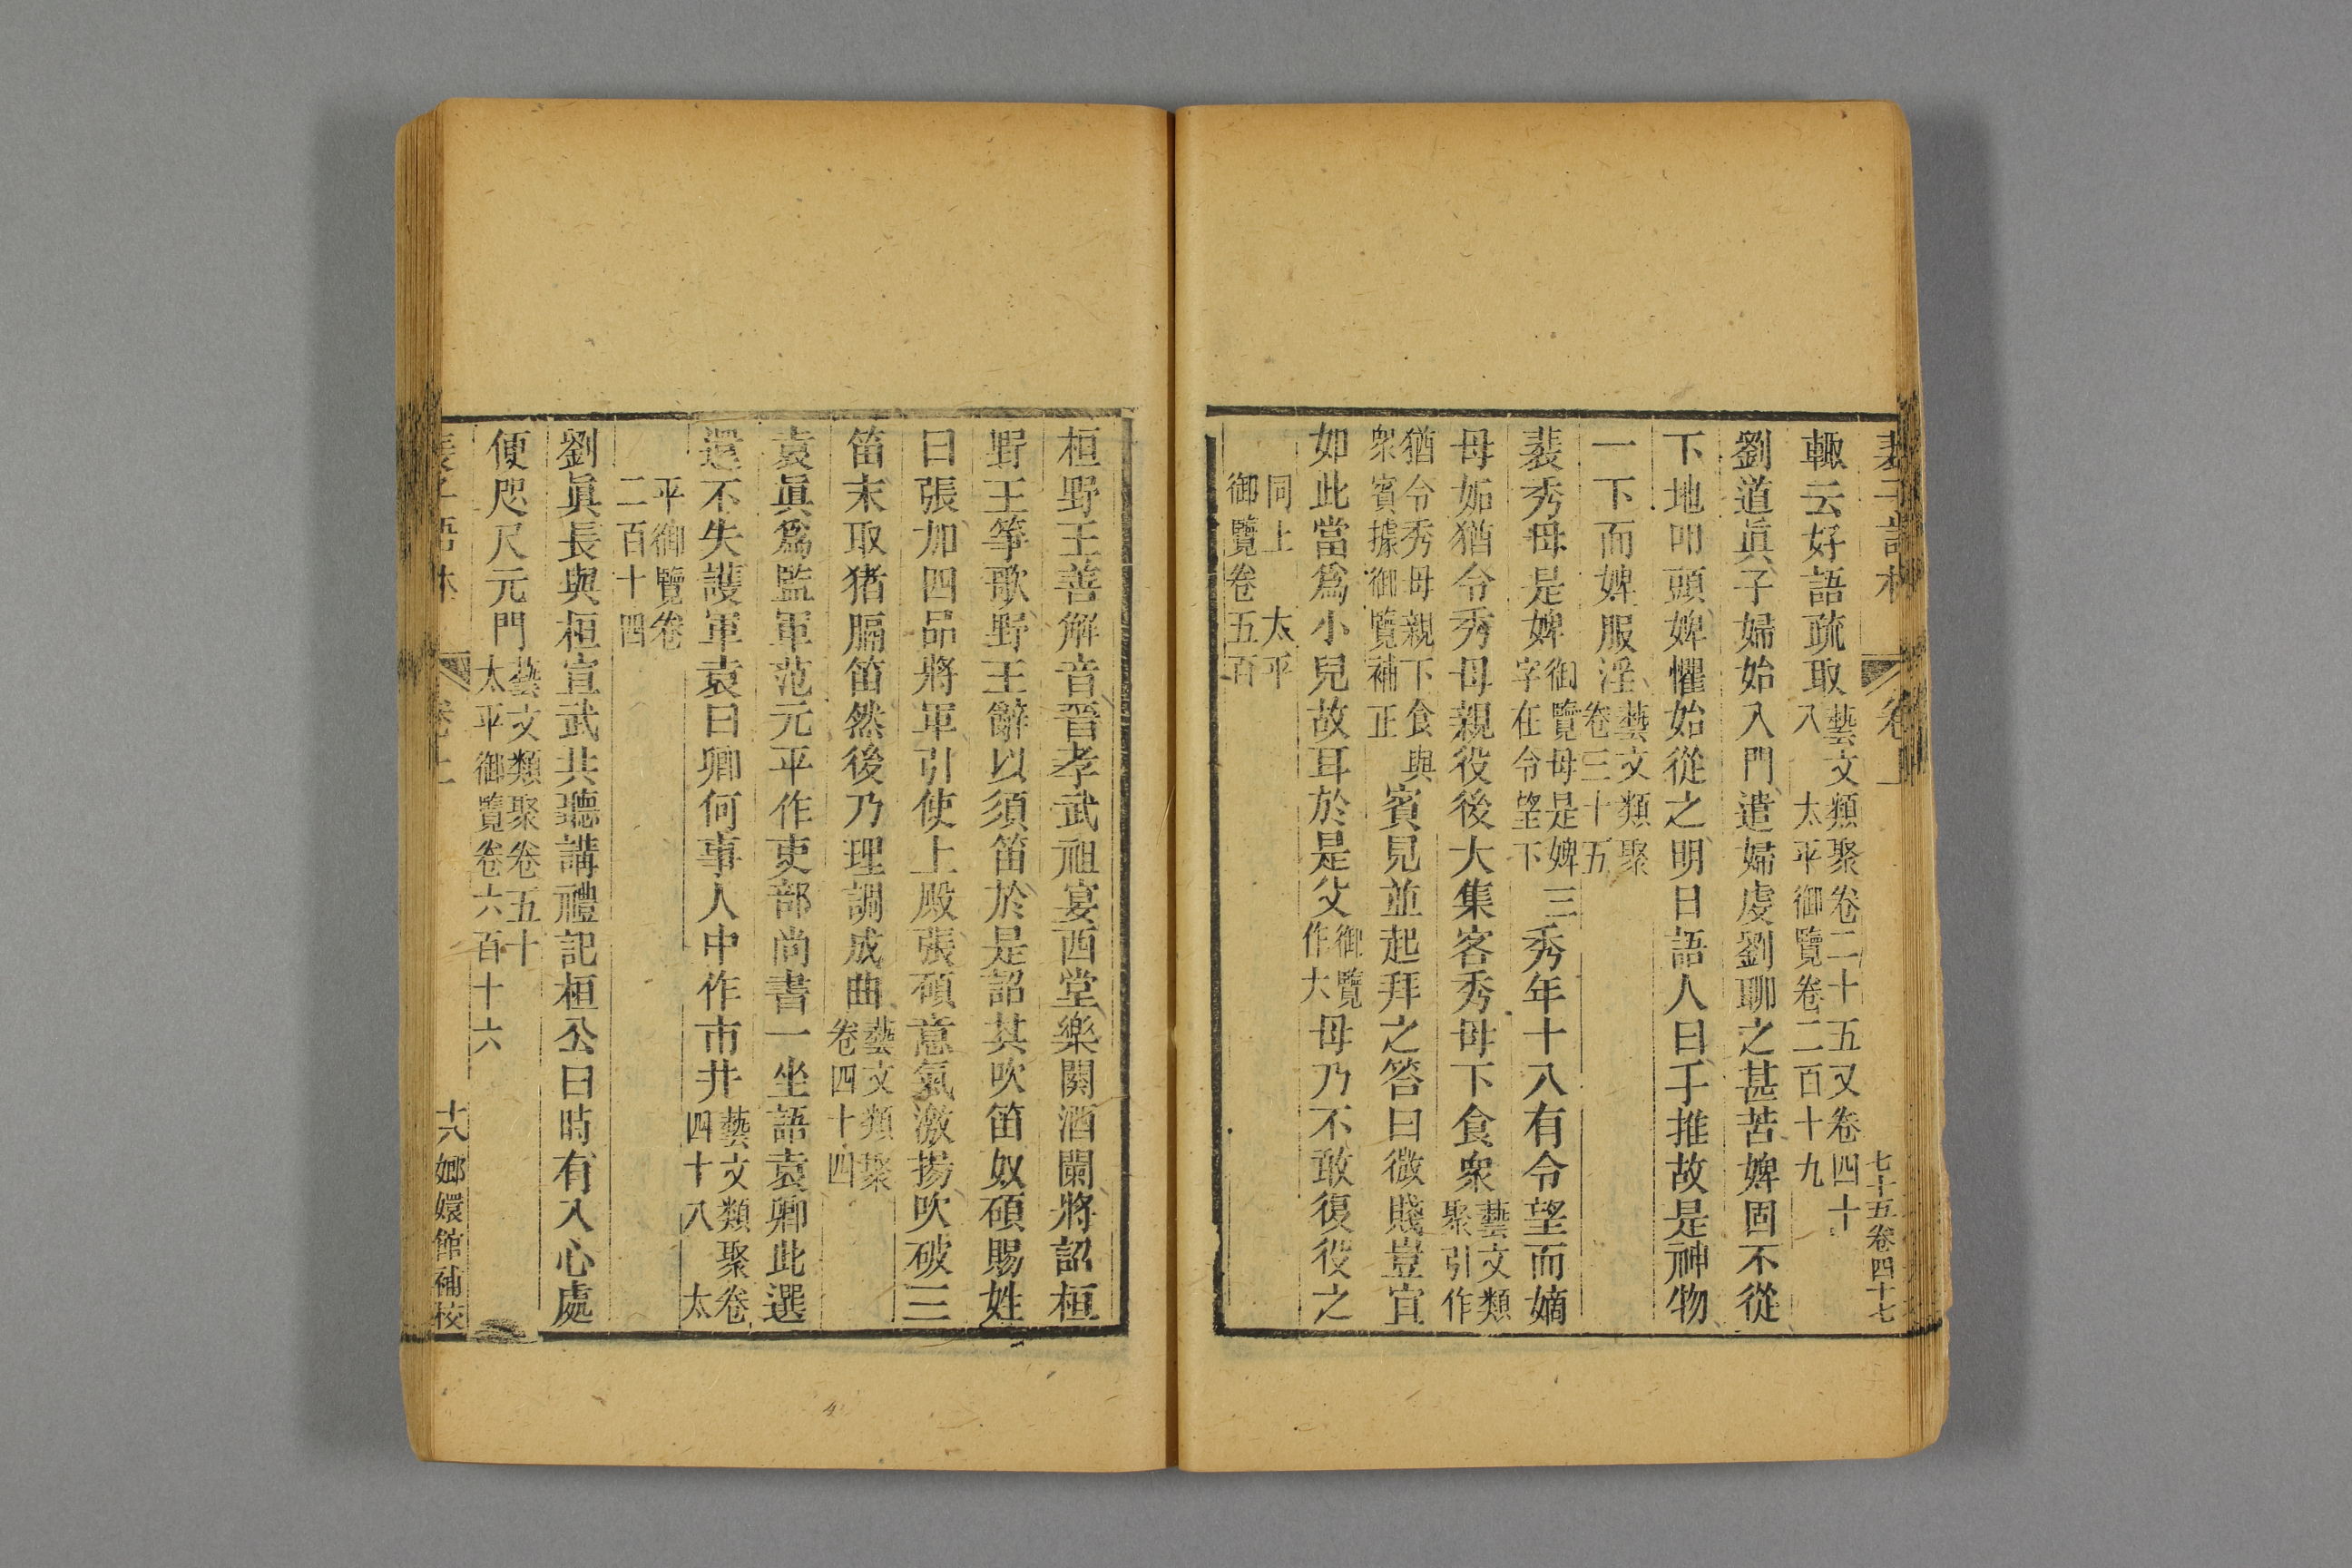 裴子語林 卷上 七十五卷四十七
輙云好語疏取藝文類聚卷二十五又卷四十八 太平御覽卷二百十九
劉道眞子婦始入門遣婦虔劉聊之甚苦婢固不從
下地叩頭婢懼始從之明日語人曰手推故是神物
一下而婢服淫藝文類聚卷三十五
裴秀母是婢御覽母是婢三字在令望下秀年十八有令望而嫡
母妬猶令秀母親役後大集客秀母下食衆藝文類聚引作
猶令秀母親下食與衆賓據御覽補正賓見並起拜之答曰微賤豈宜
如此當爲小兒故耳於是父御覽作大母乃不敢復役之
同上 太平御覽卷五百
桓野王善解音晉孝武祖宴西堂樂闋酒闌將詔桓
野王箏歌野王辭以須笛於是詔其吹笛奴碩賜姓
曰張加四品將軍引使上殿張碩意氣激揚吹破三
笛末取猪膈笛然後乃理調成曲藝文類聚卷四十四
袁眞爲監軍范元平作吏部尚書一坐語袁卿此選
還不失護軍袁曰卿何事人中作市井藝文類聚卷四十八 太
平御覽卷二百十四
劉眞長與桓宣武共聽講禮記桓公曰時有入心處
便咫尺元門藝文類聚卷五十五 太平御覽卷六百十六
裴子語林 卷上 十六 嫏嬛館補校